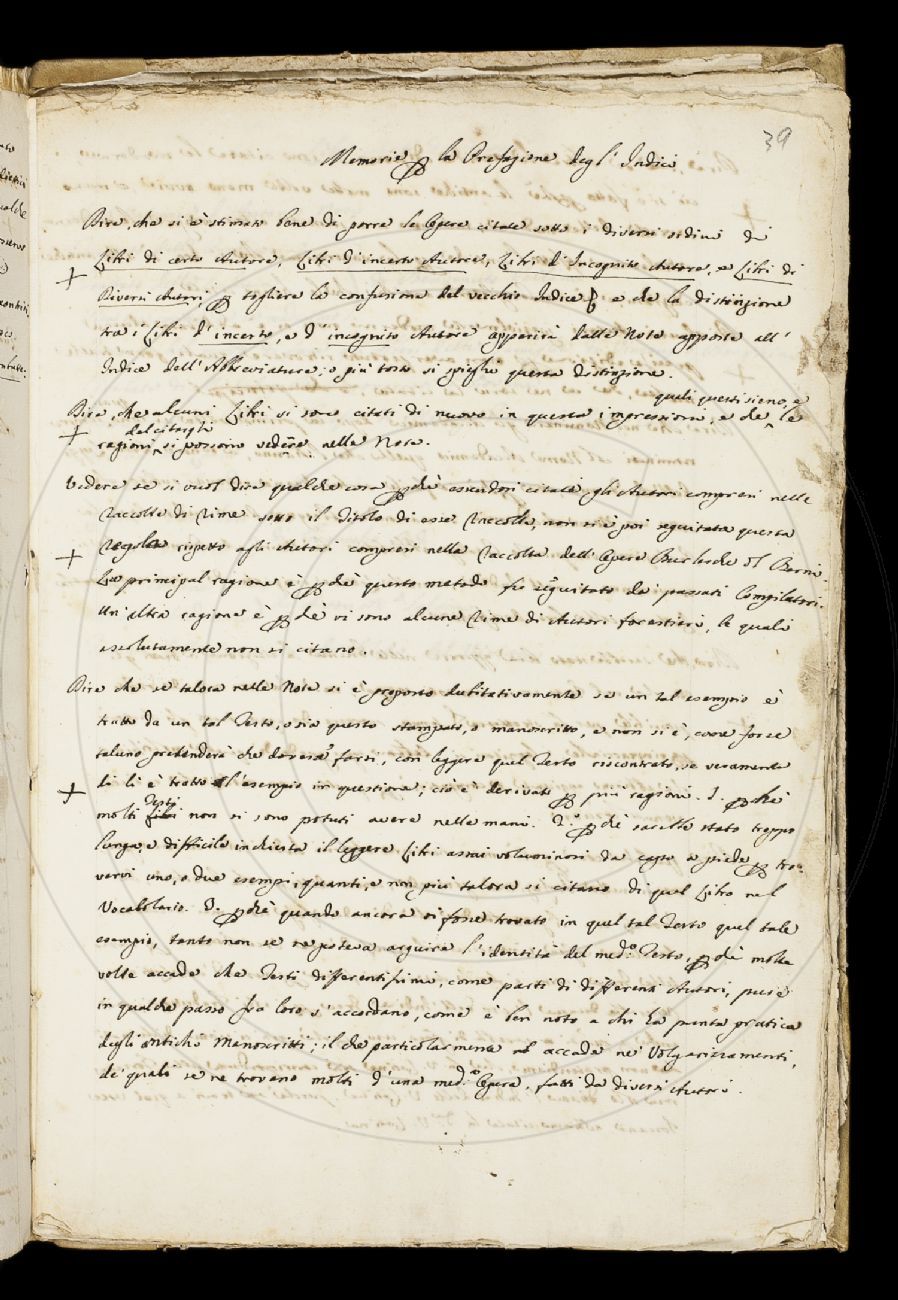 39
Memorie p la Prefazione degl' Indici
Dire, che si è stimato bene di porre le Opere citate sotto i diversi ordini di
Libri di certo Autore, Libri d'incerto Autore, Libri d'Incognito Autore, e Libri di
Diversi Autori, p togliere la confusione del vecchio Indice e che la distinzione
tra i Libri d'incerto, e d'incognito Autore apparirà dalle Note apposte all'
Indice dell'Abbreviature; o più tosto si spieghi questa distinzione.
quali questi sieno, e
Dire, che alcuni Libri si sono citati di nuovo in questa impressione, e che le
del citargli
ragioni si possono vedere nelle Note.
Vedere se si vuol dire qualche cosa pchè essendosi citati gli Autori compresi nelle
Raccolte di Rime sotto il Titolo di esse Raccolte, non si è poi seguitata questa
Regola rispetto agli Autori compresi nella Raccolta dell'Opere Burlesche del Berni.
La principal ragione è pchè questo metodo fu seguitato da' passati Compilatori.
Un'altra ragione è pchè vi sono alcune Rime di Autori forestieri, le quali
assolutamente non si citano.
Dire che se talora nelle Note si è proposto dubitativamente se un tal esempio è
tratto da un tal Testo, o sia questo stampato, o manoscritto, e non si è, come forse
taluno pretenderà che dovesse farsi, con leggere quel Testo riscontrato, se veramente
di lì è tratto l'esempio in questione; ciò è derivato p più ragioni. 1. pchè
Testi
molti non si sono potuti avere nelle mani. 2.° pchè sarebbe stato troppo
lunga, e difficile inchiesta il leggere Libri assai voluminosi da capo a piede p tro-
varvi uno, o due esempi, quanti, e non più talora si citano di quel Libro nel
Vocabolario. 3. pchè quando ancora si fosse trovato in quel tal Testo quel tale
esempio, tanto non se ne poteva arguire l'identità del med.° Testo, pchè molte
volte accade che Testi differentissimi, come parti di differenti Autori, pure
in qualche passo fra loro s'accordano, come è ben noto a chi ha punta pratica
degli antichi Manoscritti; il che particolarmente accade ne' Volgarizzamenti,
de' quali se ne trovano molti d'una med.a Opera, fatti da diversi Autori.